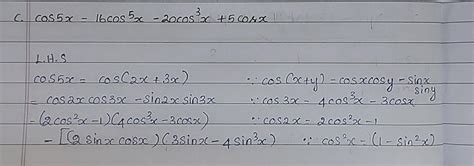 c. cos5x - 16cos⁵x - 20cos³x + 5cosx
L.H.S
cos5x = cos(2x + 3x) ∵ cos(x+y) - cosxcosy - sinx siny
= cos2x cos3x - sin2x sin3x ∵ cos3x = 4cos³x - 3cosx
- (2cos²x - 1)(4cos³x - 3cosx) ∵ cos2x = 2cos²x - 1
- [(2sinx cosx)(3sinx - 4sin³x) ∵ cos²x = (1 - sin²x)